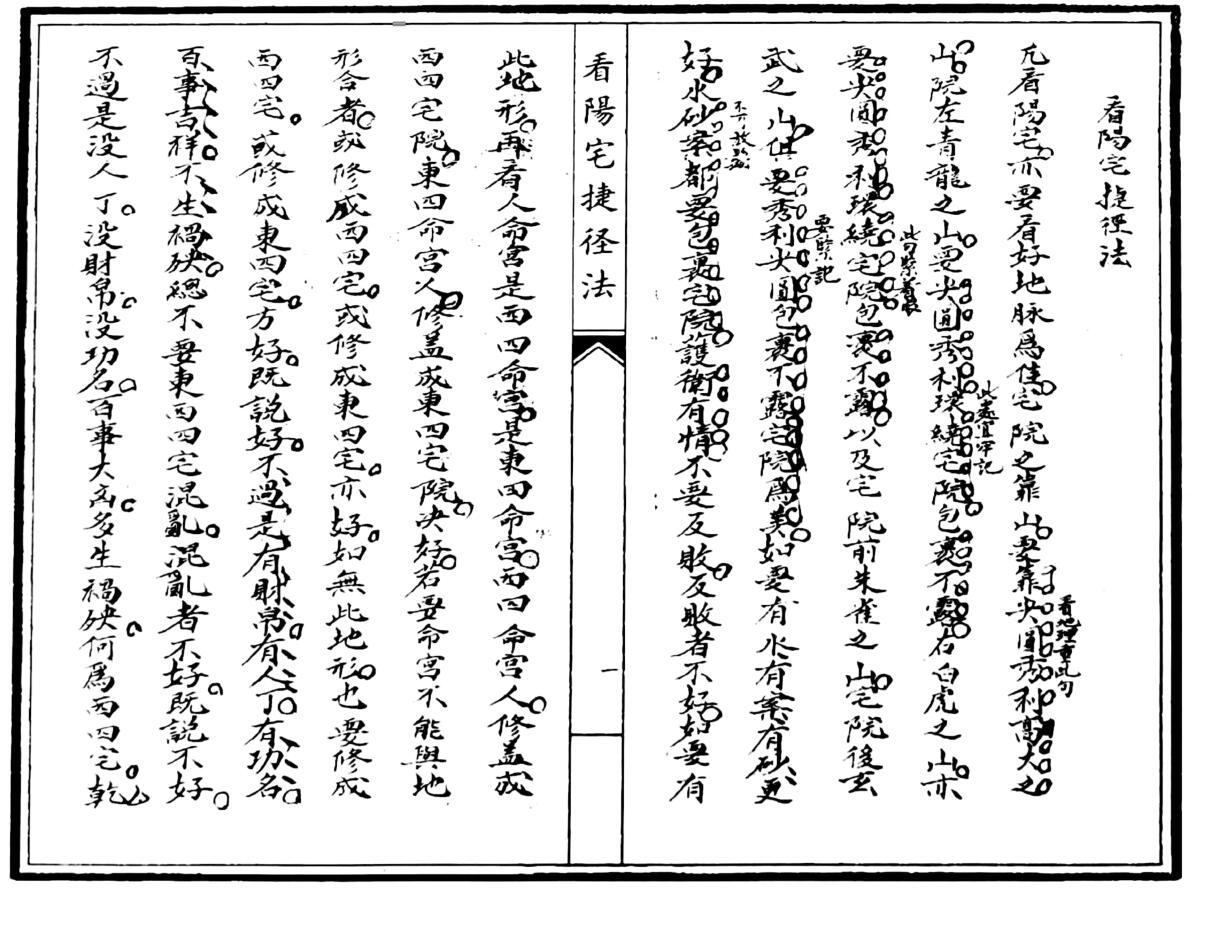 看陽宅捷徑法
凡看陽宅亦要看好地脉爲佳宅院之靠山要靠尖圓秀利高大之
看地理重此句
山院左青龍之山要尖圓秀利環繞宅院包裹不露右白虎之山亦
此處宜牢記
要尖圓秀利環繞宅院包裹不露以及宅院前朱雀之山宅院後玄
此句緊着眼
武之山俱要秀利尖圓包裹不露宅院爲美如要有水有案有砂更
要緊記
好水砂案都要包裹宅院護衛有情不要反敗反敗者不好如要有
看陽宅捷径法
一
此地形再看人命宮是西四命宮是東四命宮西四命宮人修盖成
西四宅院東四命宮人修盖成東四宅院决好若要命宮不能與地
形合者或修成西四宅或修成東四宅亦好如無此地形也要修成
西四宅或修成東四宅方好既説好不過是有財帛有人丁有功名
百事吉祥不生禍殃總不要東西四宅混亂混亂者不好既説不好
不過是没人丁没財帛没功名百事大凶多生禍殃何爲西四宅乾